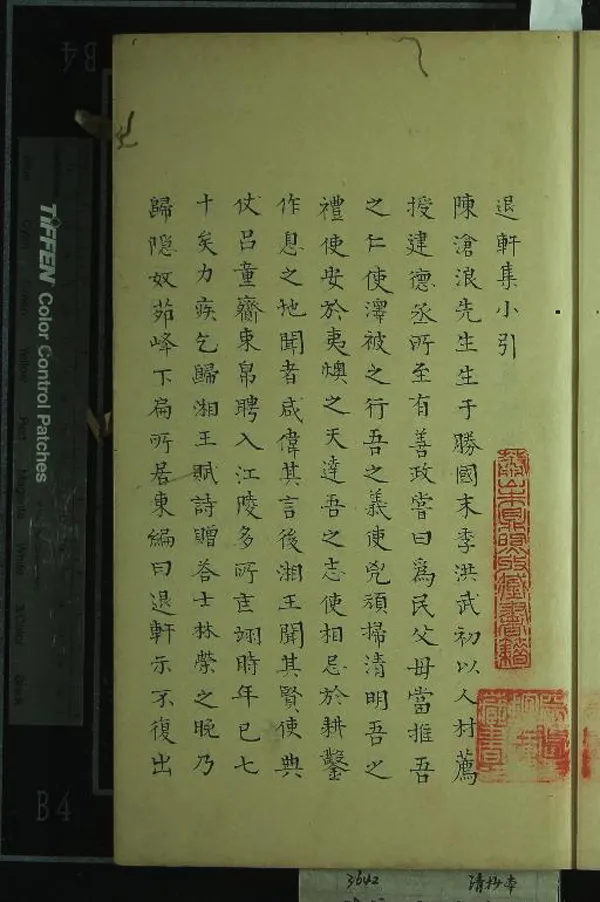 退軒集小引
陳滄浪先生生于勝國末季洪武初以人材薦
授建德丞所至有善政嘗曰為民父母當推吾
之仁使澤被之行吾之義使兇頑掃清明吾之
禮使安於夷懊之天達吾之志使相忘於耕鑿
作息之地聞者咸偉其言後湘王聞其賢使典
仗呂童齎束帛聘入江陵多所匡翊時年已七
十矣力疾乞歸湘王賦詩贈荅士林榮之晚乃
歸隱奴茆峰下扁所居東編曰退軒示不復出
TIFFEN Color Control Patches
B4
B4
3642
清抄本